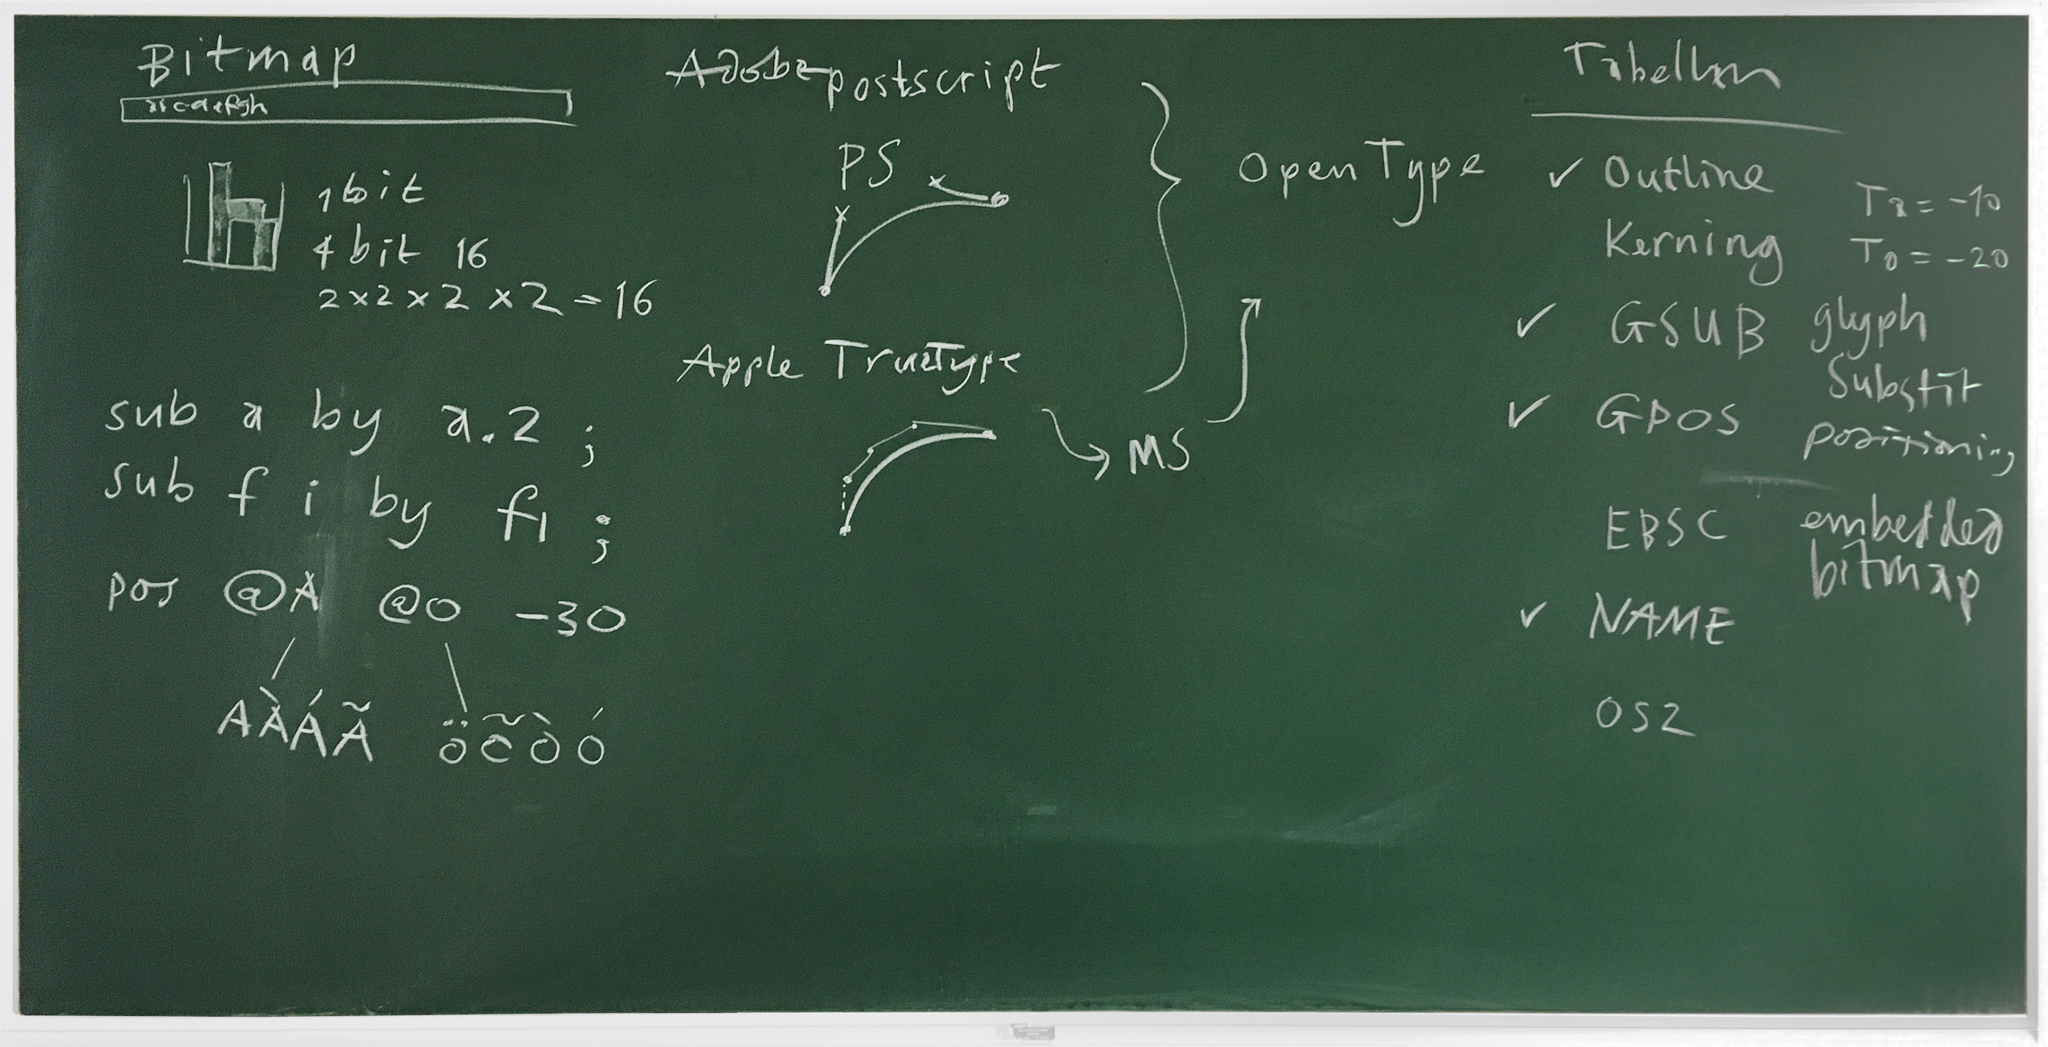 Bitmap
1 bit
4 bit 16
2 x 2 x 2 x 2 = 16
sub a by a.2 ;
sub f i by fi ;
pos @A @o -30
A À Á Ã ö õ ò ó
Adobe postscript
PS
Apple TrueType
MS
OpenType
Tabellen
✓ Outline
Ta = -10
Kerning
To = -20
✓ GSUB glyph
Substit
✓ GPOS positioning
EBSC embedded
bitmap
✓ NAME
OS2